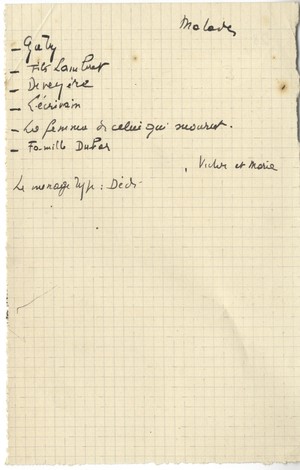 Malades
- Gaby
- Fils Lambret
- Deveyère
- L'écrivain
- La femme de celui qui mourut.
- Famille Dufar
Victor et Marie
Le ménage type : Déc